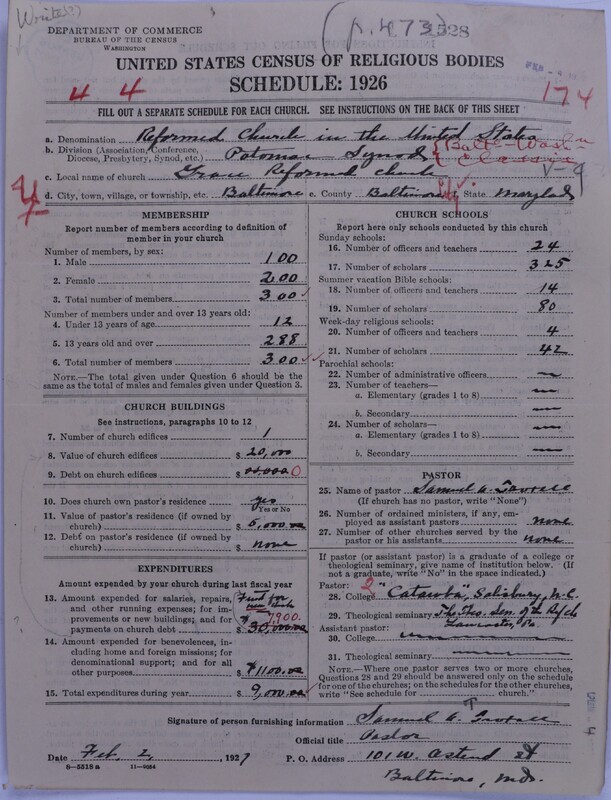 Write(?)
(p. 473) 328
DEPARTMENT OF COMMERCE
BUREAU OF THE CENSUS
WASHINGTON
UNITED STATES CENSUS OF RELIGIOUS BODIES
SCHEDULE: 1926
4 4
174
FILL OUT A SEPARATE SCHEDULE FOR EACH CHURCH. SEE INSTRUCTIONS ON THE BACK OF THIS SHEET
a. Denomination Reformed Church in the United States
b. Division (Association, Conference, Diocese, Presbytery, Synod, etc.) Potomac Synod {Balto-Wash-n Classis
c. Local name of church Grace Reformed Church V-9
d. City, town, village, or township, etc. Baltimore e. County Baltimore City State Maryland
MEMBERSHIP
Report number of members according to definition of
member in your church
Number of members, by sex:
1. Male 100
2. Female 200
3. Total number of members 300
Number of members under and over 13 years old:
4. Under 13 years of age 12
5. 13 years old and over 288
6. Total number of members 300
NOTE.—The total given under Question 6 should be
same as the total of males and females given under Question 3.
CHURCH BUILDINGS
See instructions, paragraphs 10 to 12
7. Number of church edifices 1
8. Value of church edifices $ 20,000
9. Debt on church edifices $ 0
10. Does church own pastor's residence yes
Yes or No
11. Value of pastor's residence (if owned by
church) $ 5,000.00
12. Debt on pastor's residence (if owned by
church) $ none
EXPENDITURES
Amount expended by your church during last fiscal year
13. Amount expended for salaries, repairs,
and other running expenses; for im-
provements or new buildings; and for
payments on church debt $ 7,900.
14. Amount expended for benevolences, in-
cluding home and foreign missions; for
denominational support; and for all
other purposes $ 1100.00
15. Total expenditures during year $ 9,000.00
CHURCH SCHOOLS
Report here only schools conducted by this church
Sunday schools:
16. Number of officers and teachers 24
17. Number of scholars 325
Summer vacation Bible schools:
18. Number of officers and teachers 14
19. Number of scholars 80
Week-day religious schools:
20. Number of officers and teachers 4
21. Number of scholars 42
Parochial schools:
22. Number of administrative officers —
23. Number of teachers—
a. Elementary (grades 1 to 8) —
b. Secondary —
24. Number of scholars—
a. Elementary (grades 1 to 8) —
b. Secondary —
PASTOR
25. Name of pastor Samuel A.
(If church has no pastor, write "None")
26. Number of ordained ministers, if any, em-
ployed as assistant pastors none
27. Number of other churches served by the
pastor or his assistants none
If pastor (or assistant pastor) is a graduate of a college or
theological seminary, give name of institution below. (If
not a graduate, write "No" in the space indicated.)
Pastor: 2
28. College "Catawba", Salisbury, N.C.
29. Theological seminary The Theo. Sem. of the Ref Ch Lancaster, Pa.
Assistant pastor:
30. College
31. Theological seminary
NOTE.—Where one pastor serves two or more churches,
Questions 28 and 29 should be answered only on the schedule
for one of the churches; on the schedules for the other churches,
write "See schedule for church."
Signature of person furnishing information Samuel A.
Official title Pastor
Date Feb. 2, 1927 P. O. Address 101 W. Ostend St
8—5518 a 11—9064
Baltimore, Md.